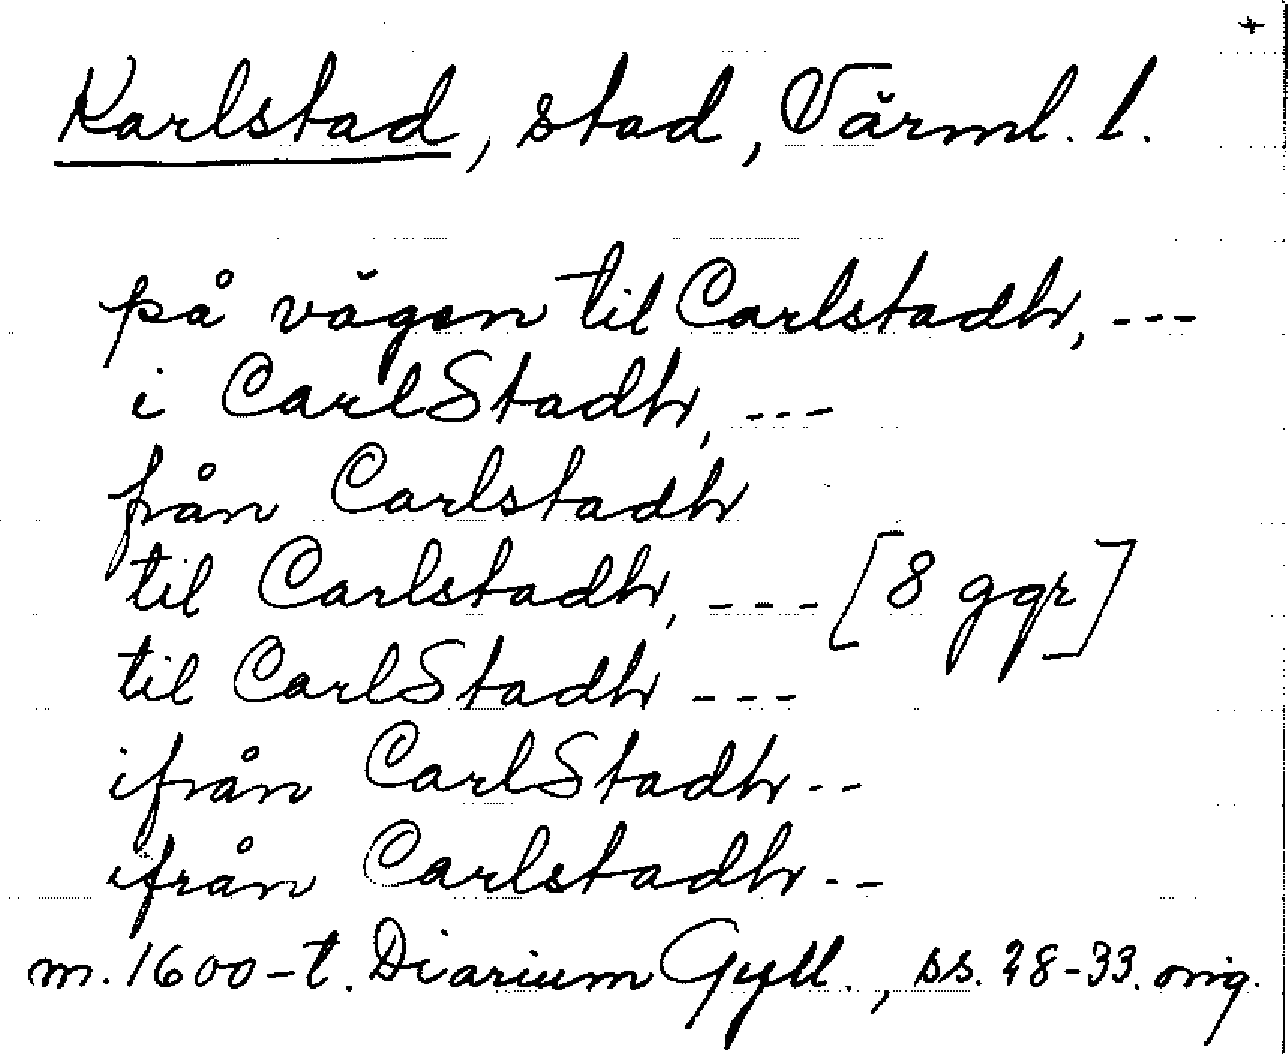 +
Karlstad, stad, Värml. l.
på vägen til Carlstadh, ---
i CarlStadh, ---
från Carlstadh
til Carlstadh, --- [8 ggr]
til CarlStadh ---
ifrån CarlStadh --
ifrån Carlstadh --
m. 1600-t. Diarium Gyll., ss. 28-33. orig.